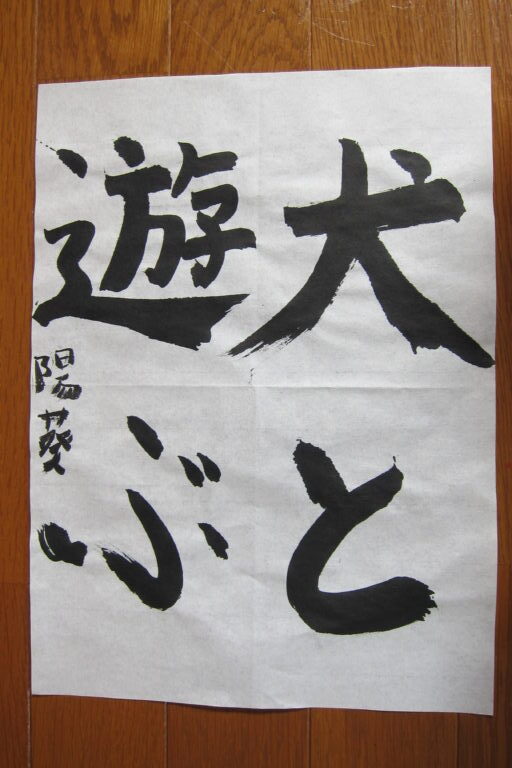 犬と
遊ぶ
陽葵